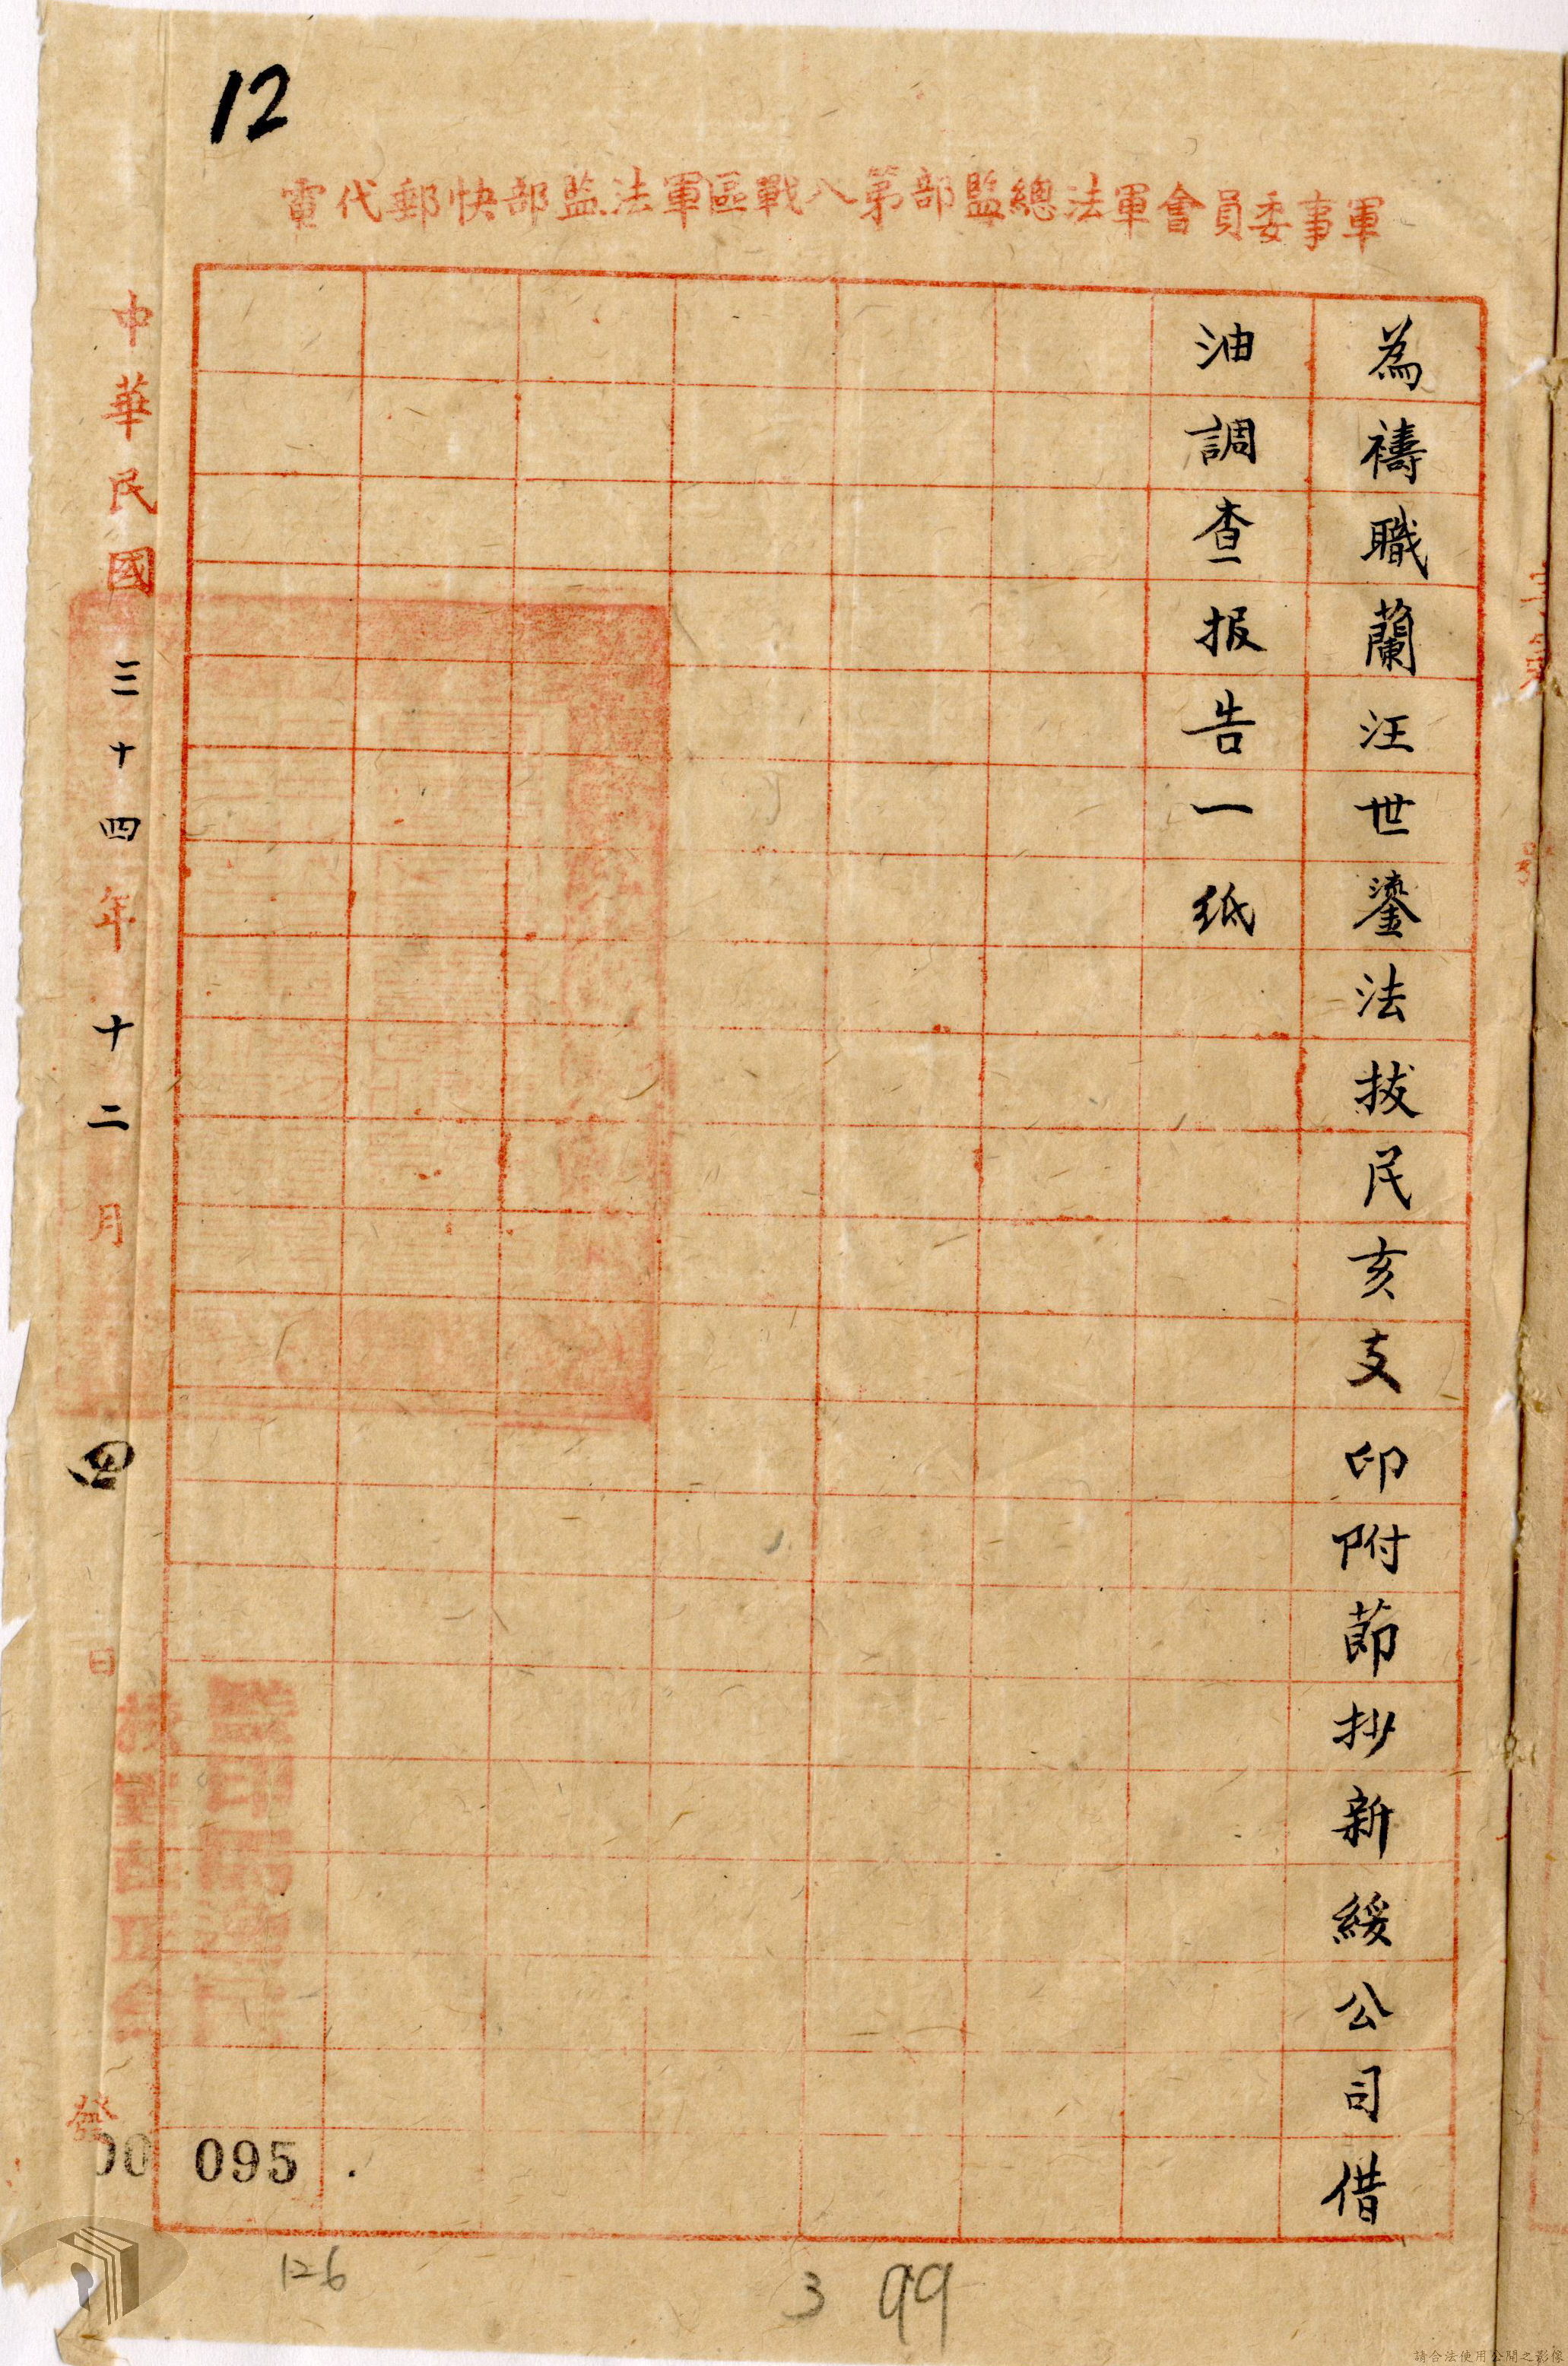 12
軍事委員會軍法總監部第八戰區軍法監部快郵代電
為禱職蘭汪世鎏法拔民亥支印附節抄新綏公司借
油調查報告一紙
中華民國三十四年十二月四日發
監印
校對
00095
126
3 99
請合法使用公開之影像